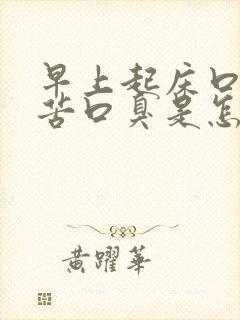 早上起床口
苦口臭是怎
黄躍華